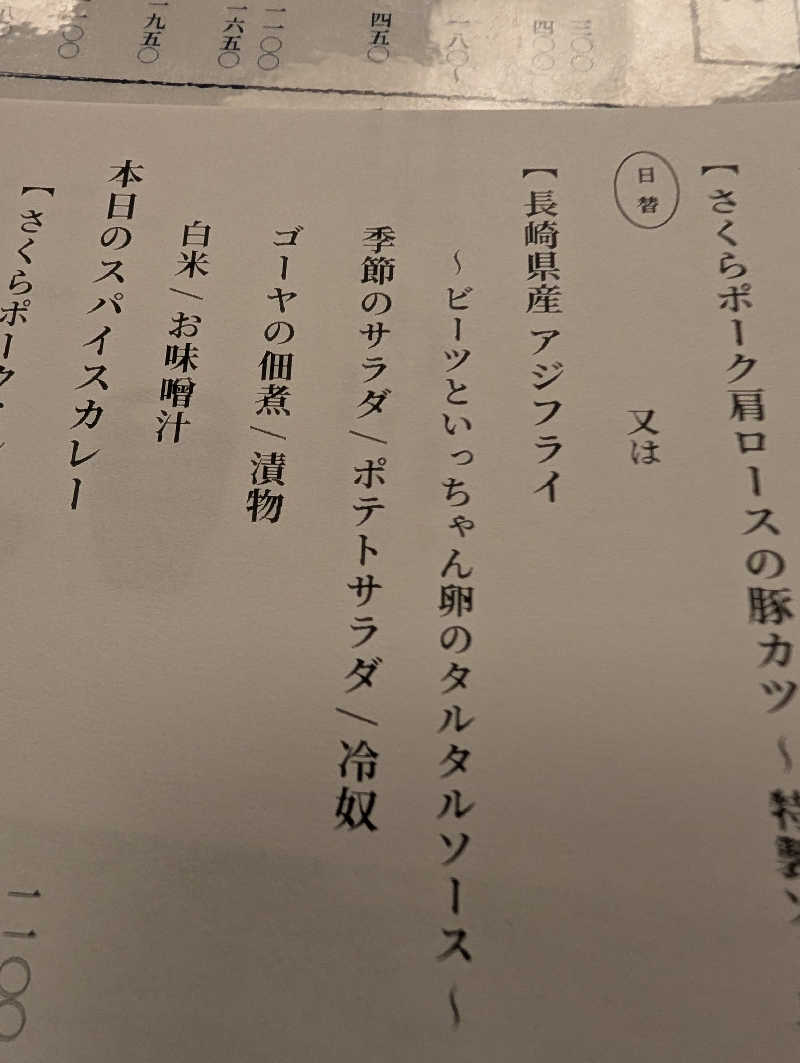 三〇〇
四〇〇
一八〇〜
四五〇
一一〇〇
一六五〇
一九五〇
【さくらポーク肩ロースの豚カツ 〜特製ソ
日替
又は
【長崎県産 アジフライ
〜ビーツといっちゃん卵のタルタルソース〜
季節のサラダ/ポテトサラダ/冷奴
ゴーヤの佃煮/漬物
白米/お味噌汁
本日のスパイスカレー
【さくらポーク
一一〇〇